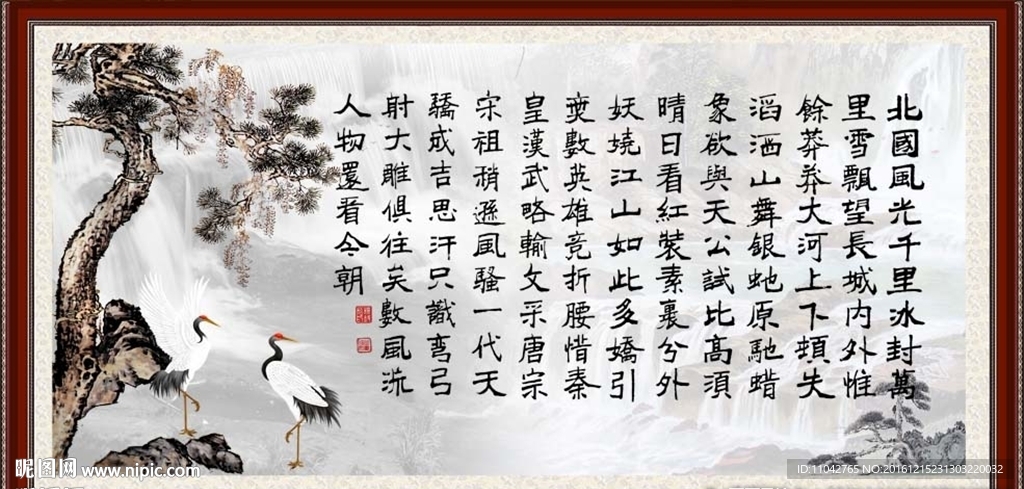 北國風光千里冰封萬
里雪飄望長城內外惟
餘莽莽大河上下頓失
滔洒山舞銀虵原馳蜡
象欲與天公試比高須
晴日看紅裝素裹兮外
妖嬈江山如此多嬌引
數英雄竞折腰惜秦
皇漢武略輸文采唐宗
宋祖稍遜風騷一代天
驕成吉思汗只識彎弓
射大雕俱往矣數風流
人物還看今朝
昵图网 www.nipic.com
ID:11042765 NO:20161215231303220032